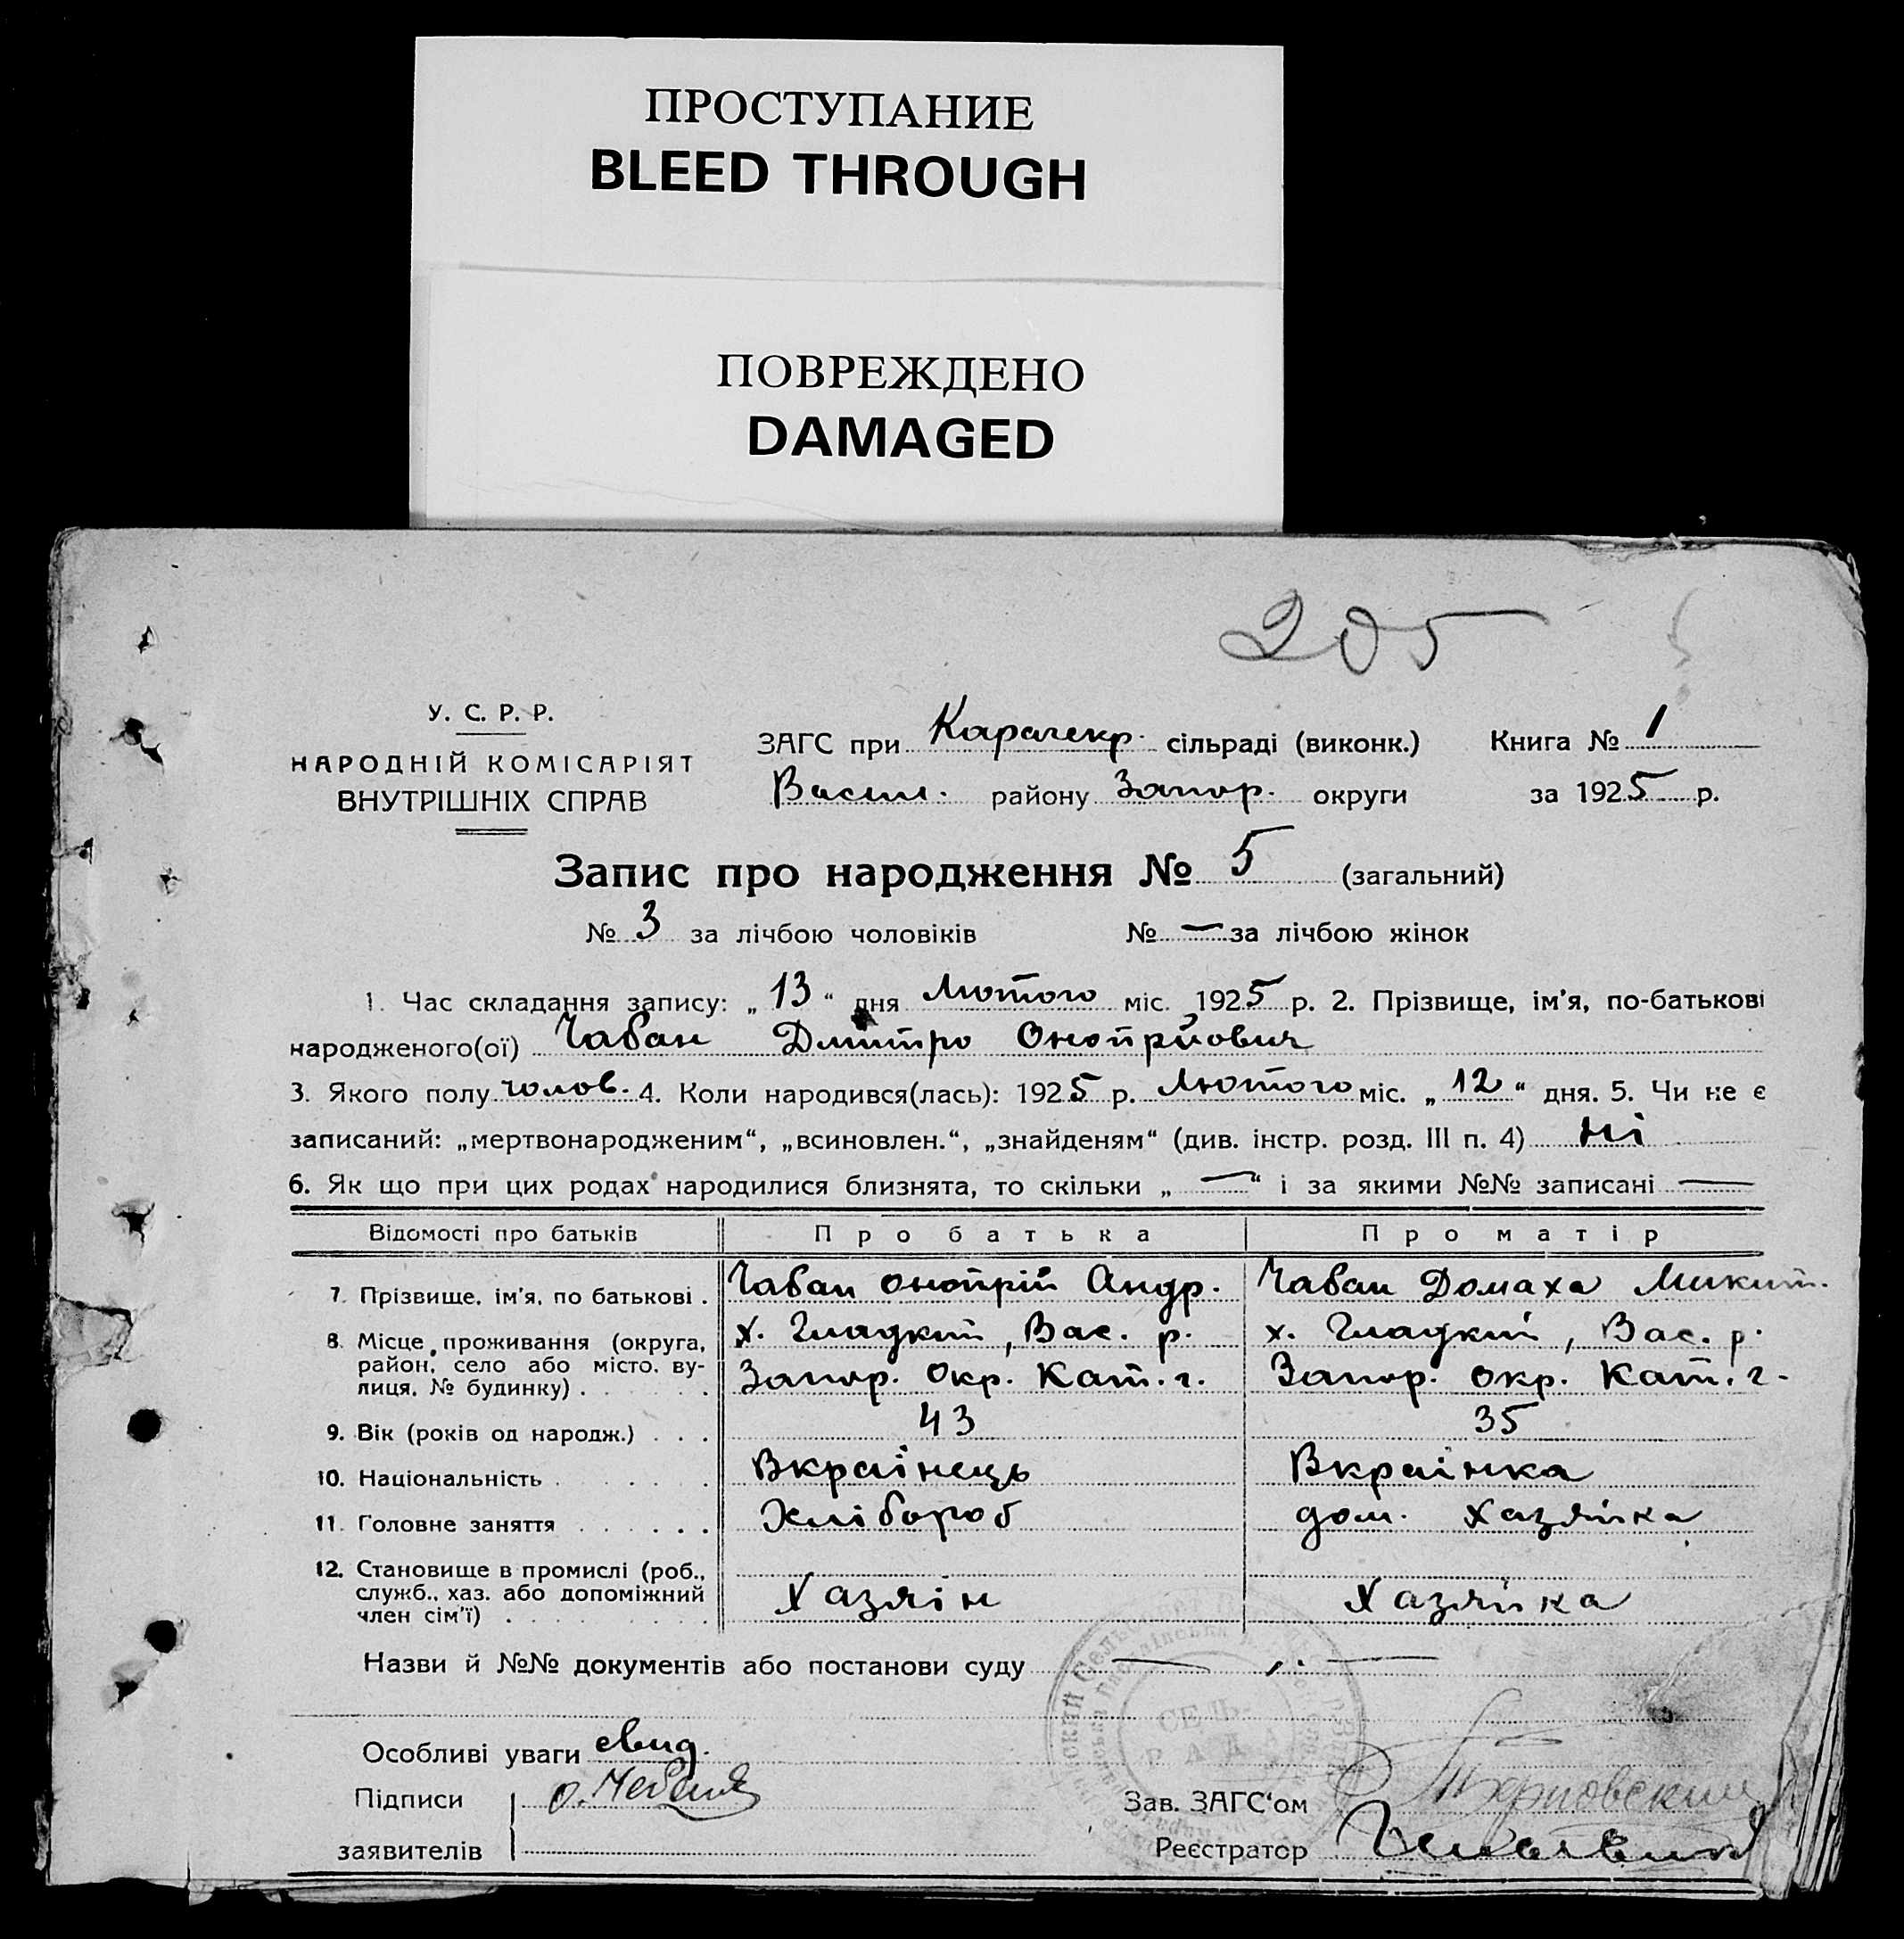 ПРОСТУПАНИЕ
BLEED THROUGH
ПОВРЕЖДЕНО
DAMAGED
205
У. С. Р. Р.
НАРОДНІЙ КОМІСАРІЯТ
ВНУТРІШНІХ СПРАВ
ЗАГС при Карачекр. сільраді (виконк.) Книга № 1
Васил. району Запор. округи за 1925 р.
Запис про народження № 5 (загальний)
№ 3 за лічбою чоловіків № — за лічбою жінок
1. Час складання запису: „13“ дня Лютого міс. 1925 р. 2. Прізвище, ім'я, по-батькові
народженого(ої) Чабан Дмитро Онопрійович
3. Якого полу чолов. 4. Коли народився(лась): 1925 р. Лютого міс. „12“ дня. 5. Чи не є
записаний: „мертвонародженим“, „всиновлен.“, „знайденям“ (див. інстр. розд. III п. 4) ні
6. Як що при цих родах народилися близнята, то скільки „—“ і за якими №№ записані —
Відомості про батьків Про батька Про матір
7. Прізвище, ім'я, по батькові . Чабан Онопрій Андр. Чабан Домаха Микит.
8. Місце проживання (округа, х. Гладкий, Вас. р. х. Гладкий, Вас. р.
район, село або місто, ву-
лиця, № будинку) . . . Запор. окр. Кат. г. Запор. окр. Кат. г.
9. Вік (років од народж.) . . . 43 35
10. Національність . . . . . Вкраінець Вкраінка
11. Головне заняття . . . . . . Хлібороб дом. Хазяйка
12. Становище в промислі (роб.,
служб., хаз. або допоміжний Хазяін Хазяйка
член сім'ї) . . . . . . . .
Назви й №№ документів або постанови суду — „ —
СЕЛЬ-
РАДА
Особливі уваги свид.
Підписи
заявителів
Зав. ЗАГС'ом
Реєстратор